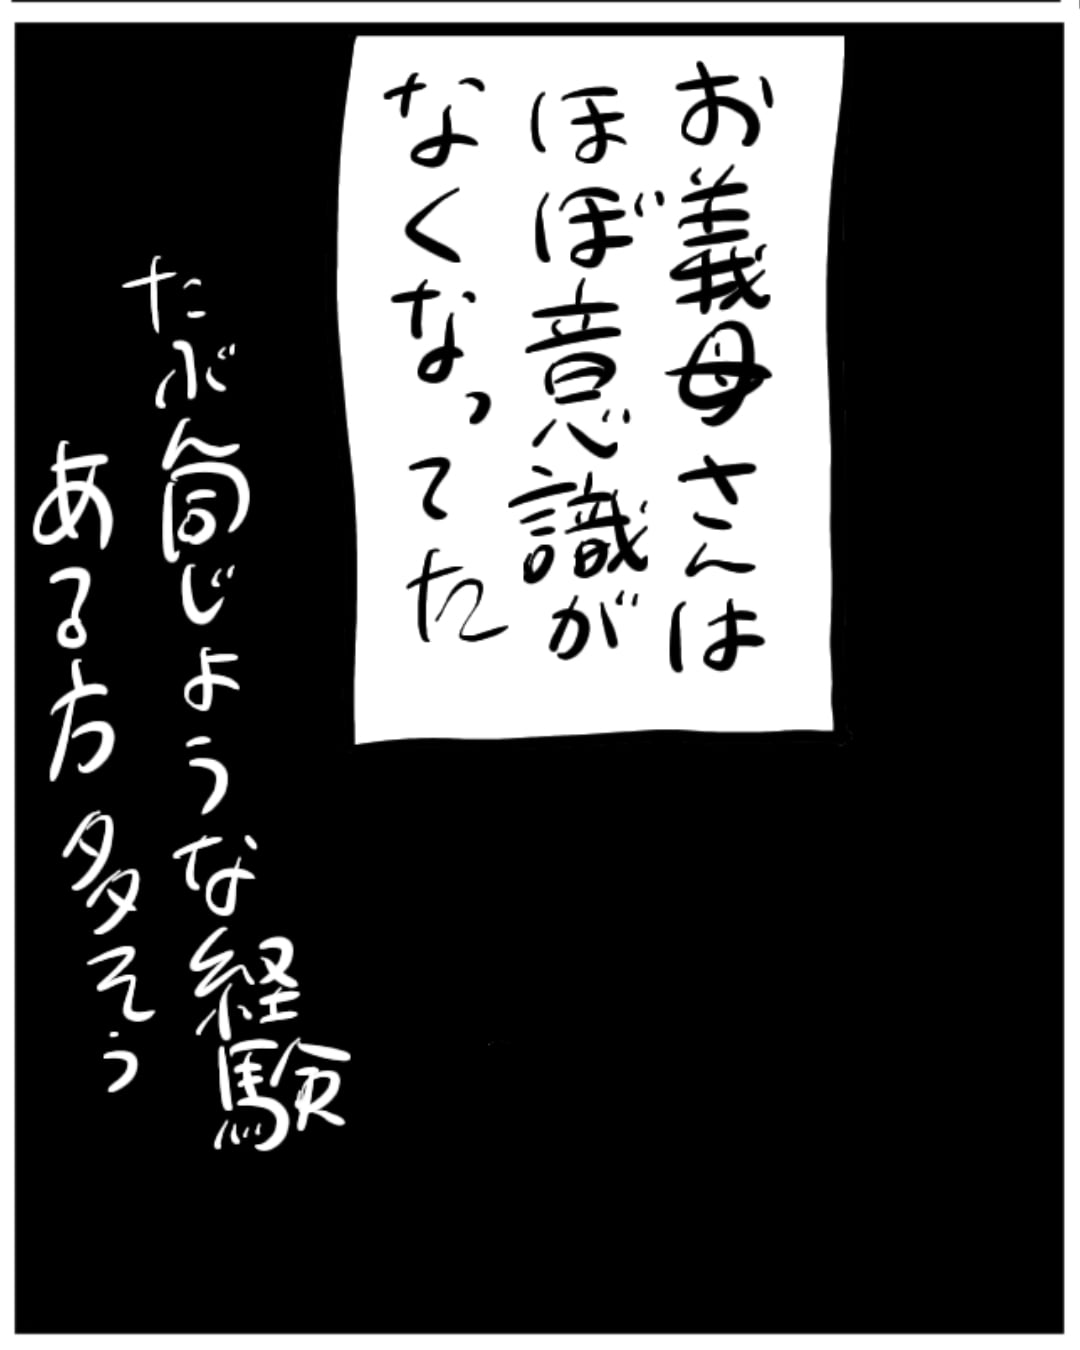 お義母さんは
ほぼ意識が
なくなってた
たぶん同じような経験
ある方多そう